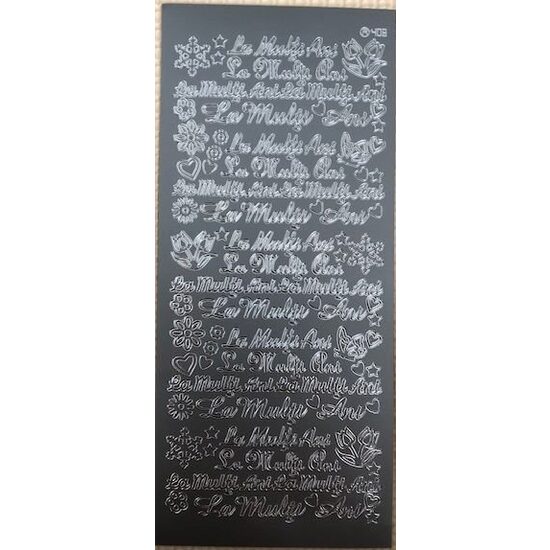 408
La Mulţi Ani
La Mulţi Ani
La Mulţi Ani La Mulţi Ani
La Mulţi Ani
La Mulţi Ani
La Mulţi Ani
La Mulţi Ani La Mulţi Ani
La Mulţi Ani
La Mulţi Ani
La Mulţi Ani
La Mulţi Ani La Mulţi Ani
La Mulţi Ani
La Mulţi Ani
La Mulţi Ani
La Mulţi Ani La Mulţi Ani
La Mulţi Ani
La Mulţi Ani
La Mulţi Ani
La Mulţi Ani La Mulţi Ani
La Mulţi Ani